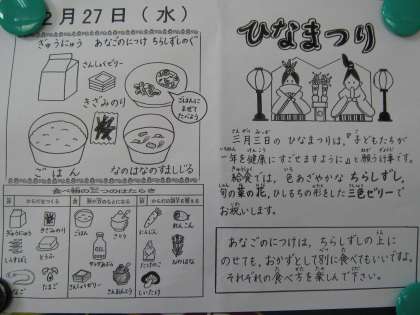 2月27日(水)
ぎゅうにゅう あなごのにつけ ちらしずしのぐ
さんしょくゼリー
きざみのり
ごはんに
まぜて
たべよう
ごはん
なのはなのすましじる
食べ物の三つのはたらき
ぎゅうにゅう
きざみのり
とうふ
たまご
ごはん
さとう
にんじん
れんこん
たけのこ
なのはな
しいたけ
ひなまつり
三月三日の ひなまつりは、『子どもたちが
一年を健康に すごせますように』と願う行事です。
給食では、色あざやかな ちらしずし、
旬の菜の花、ひしもちの形をした三色ゼリーで
お祝いします。
あなごのにつけは、ちらしずしの上に
のせても、おかずとして別に食べてもいいですよ。
それぞれの食べ方を楽しんで下さい。